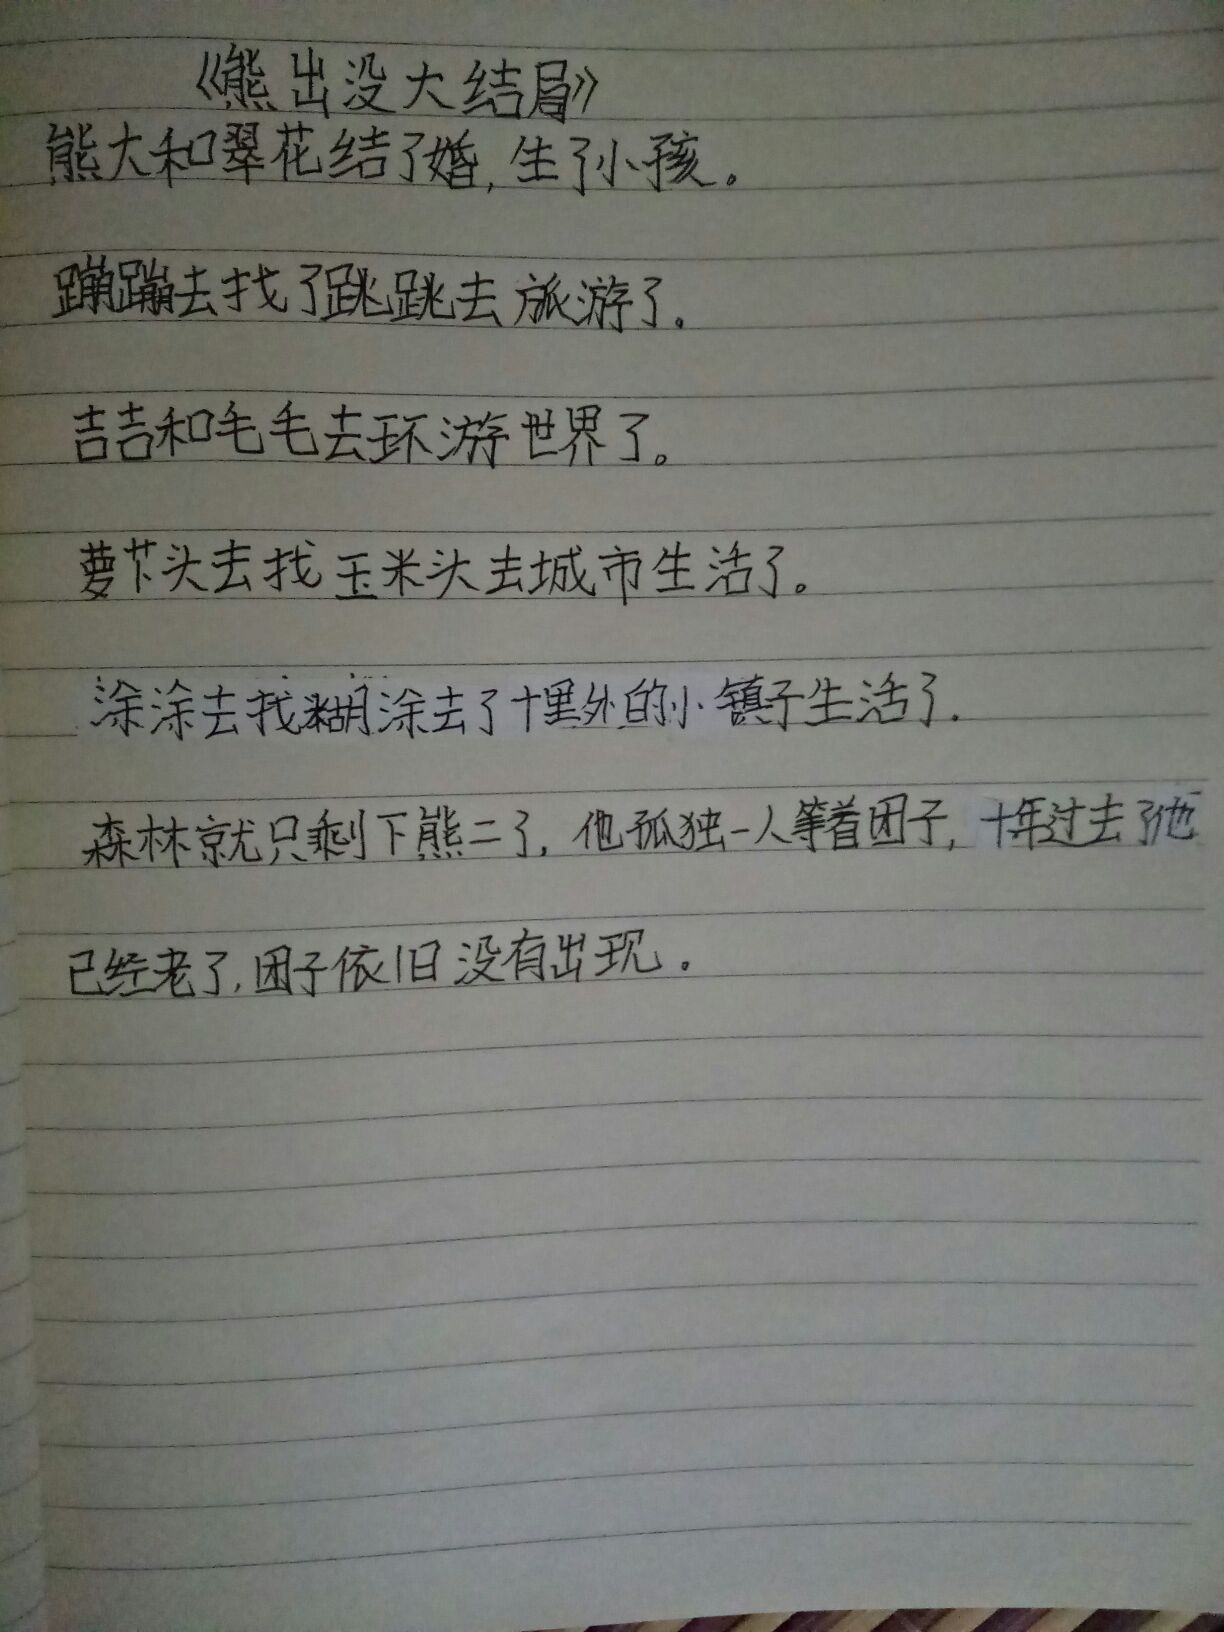 《熊出没大结局》
熊大和翠花结了婚，生了小孩。
蹦蹦去找了跳跳去旅游了。
吉吉和毛毛去环游世界了。
萝卜头去找玉米头去城市生活了。
涂涂去找糊涂去了十里外的小镇子生活了.
森林就只剩下熊二了，他孤独一人等着团子，十年过去了他
已经老了，团子依旧没有出现.